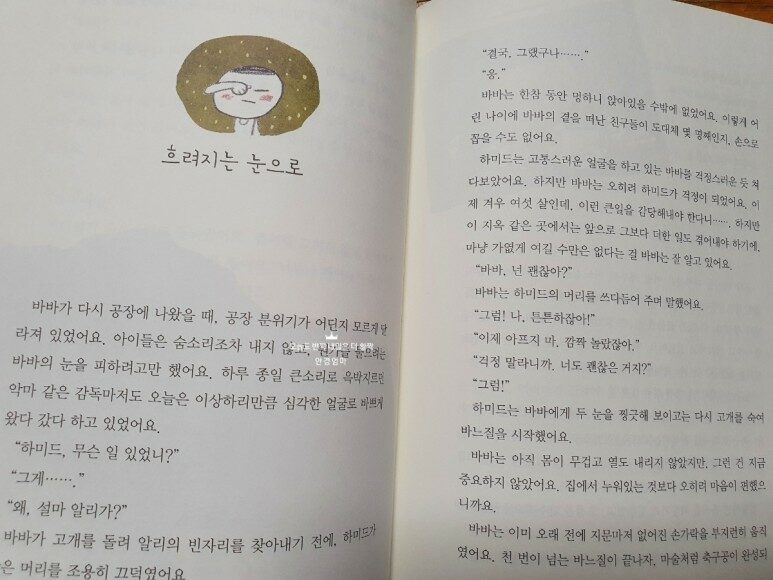 흐려지는 눈으로
바바가 다시 공장에 나왔을 때, 공장 분위기가 어딘지 모르게 달
라져 있었어요. 아이들은 숨소리조차 내지 않고,
바바의 눈을 피하려고만 했어요. 하루 종일 큰소리로 윽박지르던
악마 같은 감독마저도 오늘은 이상하리만큼 심각한 얼굴로 바쁘게
왔다 갔다 하고 있었어요.
“하미드, 무슨 일 있었니?”
“그게…….”
“왜, 설마 알리가?”
바바가 고개를 돌려 알리의 빈자리를 찾아내기 전에, 하미드가
은 머리를 조용히 끄덕였어요
“결국, 그랬구나…….”
“응.”
바바는 한참 동안 멍하니 앉아있을 수밖에 없었어요. 이렇게 어
린 나이에 바바의 곁을 떠난 친구들이 도대체 몇 명째인지, 손으로
꼽을 수도 없어요.
하미드는 고통스러운 얼굴을 하고 있는 바바를 걱정스러운 듯 쳐
다보았어요. 하지만 바바는 오히려 하미드가 걱정이 되었어요. 이
제 겨우 여섯 살인데, 이런 큰일을 감당해내야 한다니……. 하지만
이 지옥 같은 곳에서는 앞으로 그보다 더한 일도 겪어내야 하기에,
마냥 가엾게 여길 수만은 없다는 걸 바바는 잘 알고 있어요.
“바바, 넌 괜찮아?”
바바는 하미드의 머리를 쓰다듬어 주며 말했어요.
“그럼! 나, 튼튼하잖아!”
“이제 아프지 마. 깜짝 놀랐잖아.”
“걱정 말라니까. 너도 괜찮은 거지?”
“그럼!”
하미드는 바바에게 두 눈을 찡긋해 보이고는 다시 고개를 숙여
바느질을 시작했어요.
바바는 아직 몸이 무겁고 열도 내리지 않았지만, 그런 건 지금
중요하지 않았어요. 집에서 누워있는 것보다 오히려 마음이 편했으
니까요.
바바는 이미 오래 전에 지문마저 없어진 손가락을 부지런히 움직
였어요. 천 번이 넘는 바느질이 끝나자, 마술처럼 축구공이 완성되